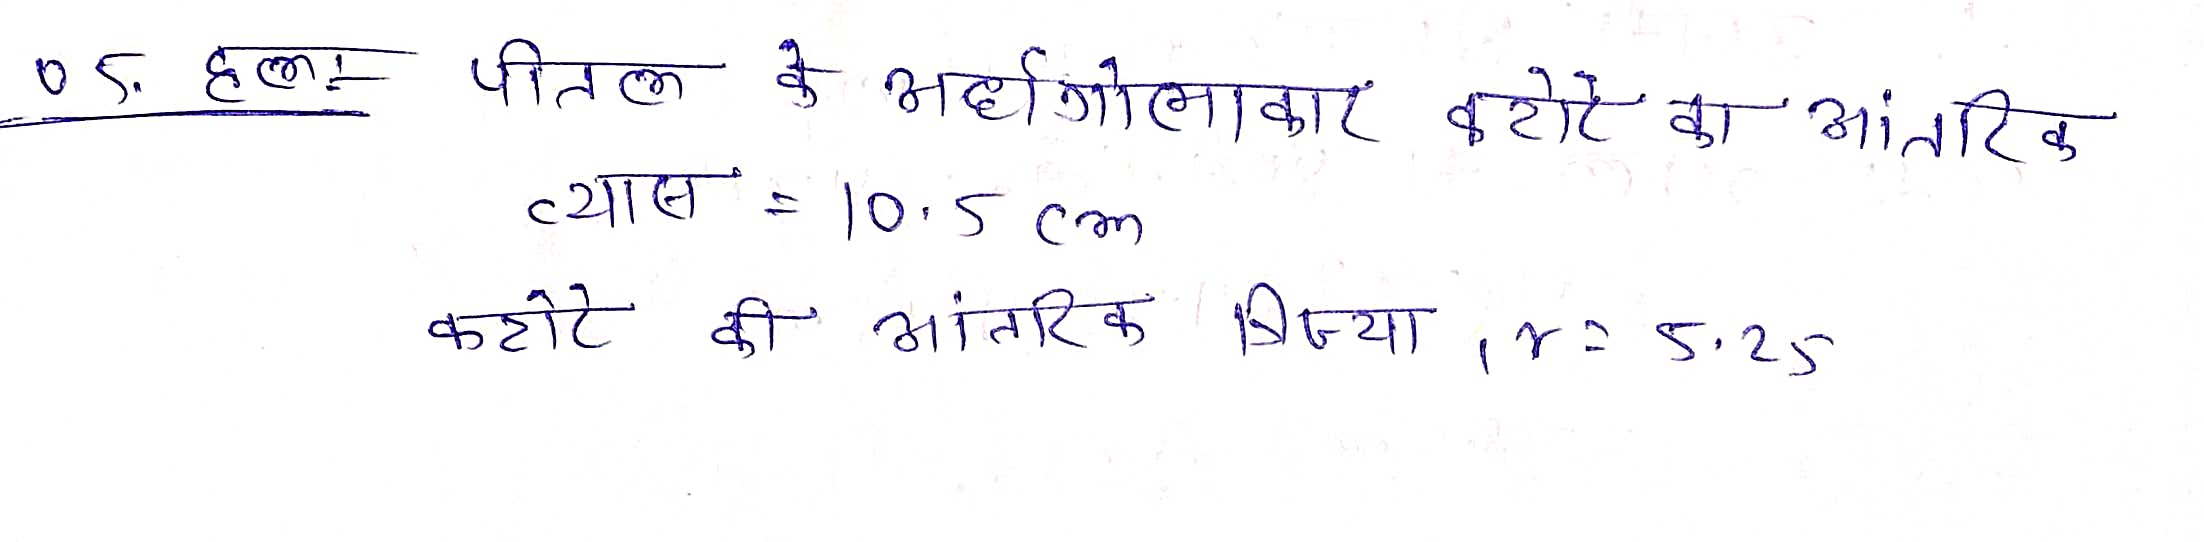 05. हल:- पीतल के अर्धगोलाकार कटोरे का आंतरिक
व्यास = 10.5 cm
कटोरे की आंतरिक त्रिज्या, r = 5.25